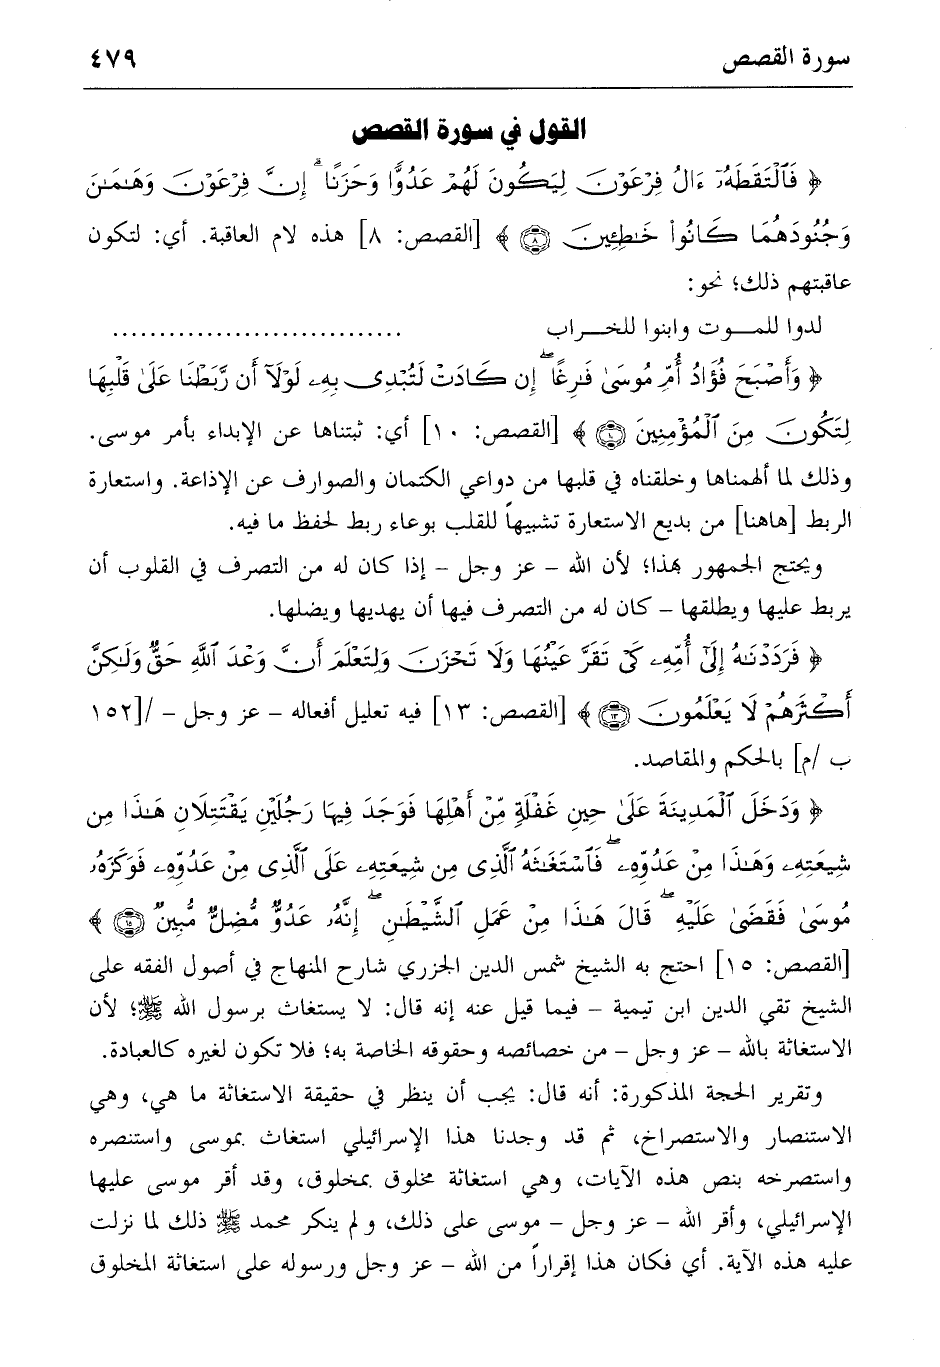 سورة القصص ٤٧٩
القول في سورة القصص
﴿ فَٱلْتَقَطَهُۥٓ ءَالُ فِرْعَوْنَ لِيَكُونَ لَهُمْ عَدُوًّا وَحَزَنًا ۗ إِنَّ فِرْعَوْنَ وَهَـٰمَـٰنَ
وَجُنُودَهُمَا كَانُوا۟ خَـٰطِـِٔينَ ۝٨ ﴾ [القصص: ٨] هذه لام العاقبة. أي: لتكون
عاقبتهم ذلك؛ نحو:
لدوا للمـــوت وابنوا للخـــراب ..............................
﴿ وَأَصْبَحَ فُؤَادُ أُمِّ مُوسَىٰ فَـٰرِغًا ۖ إِن كَادَتْ لَتُبْدِى بِهِۦ لَوْلَآ أَن رَّبَطْنَا عَلَىٰ قَلْبِهَا
لِتَكُونَ مِنَ ٱلْمُؤْمِنِينَ ۝١٠ ﴾ [القصص: ١٠] أي: ثبتناها عن الإبداء بأمر موسى.
وذلك لما ألهمناها وخلقناه في قلبها من دواعي الكتمان والصوارف عن الإذاعة. واستعارة
الربط [هاهنا] من بديع الاستعارة تشبيهاً للقلب بوعاء ربط لحفظ ما فيه.
ويحتج الجمهور بهذا؛ لأن الله – عز وجل – إذا كان له من التصرف في القلوب أن
يربط عليها ويطلقها – كان له من التصرف فيها أن يهديها ويضلها.
﴿ فَرَدَدْنَـٰهُ إِلَىٰٓ أُمِّهِۦ كَىْ تَقَرَّ عَيْنُهَا وَلَا تَحْزَنَ وَلِتَعْلَمَ أَنَّ وَعْدَ ٱللَّهِ حَقٌّ وَلَـٰكِنَّ
أَكْثَرَهُمْ لَا يَعْلَمُونَ ۝١٣ ﴾ [القصص: ١٣] فيه تعليل أفعاله – عز وجل – /[١٥٢
ب /م] بالحكم والمقاصد.
﴿ وَدَخَلَ ٱلْمَدِينَةَ عَلَىٰ حِينِ غَفْلَةٍ مِّنْ أَهْلِهَا فَوَجَدَ فِيهَا رَجُلَيْنِ يَقْتَتِلَانِ هَـٰذَا مِن
شِيعَتِهِۦ وَهَـٰذَا مِنْ عَدُوِّهِۦ ۖ فَٱسْتَغَـٰثَهُ ٱلَّذِى مِن شِيعَتِهِۦ عَلَى ٱلَّذِى مِنْ عَدُوِّهِۦ فَوَكَزَهُۥ
مُوسَىٰ فَقَضَىٰ عَلَيْهِ ۖ قَالَ هَـٰذَا مِنْ عَمَلِ ٱلشَّيْطَـٰنِ ۖ إِنَّهُۥ عَدُوٌّ مُّضِلٌّ مُّبِينٌ ۝١٥ ﴾
[القصص: ١٥] احتج به الشيخ شمس الدين الجزري شارح المنهاج في أصول الفقه على
الشيخ تقي الدين ابن تيمية – فيما قيل عنه إنه قال: لا يستغاث برسول الله ﷺ؛ لأن
الاستغاثة بالله – عز وجل – من خصائصه وحقوقه الخاصة به؛ فلا تكون لغيره كالعبادة.
وتقرير الحجة المذكورة: أنه قال: يجب أن ينظر في حقيقة الاستغاثة ما هي، وهي
الاستنصار والاستصراخ، ثم قد وجدنا هذا الإسرائيلي استغاث بموسى واستنصره
واستصرخه بنص هذه الآيات، وهي استغاثة مخلوق بمخلوق، وقد أقر موسى عليها
الإسرائيلي، وأقر الله – عز وجل – موسى على ذلك، ولم ينكر محمد ﷺ ذلك لما نزلت
عليه هذه الآية. أي فكان هذا إقراراً من الله – عز وجل ورسوله على استغاثة المخلوق